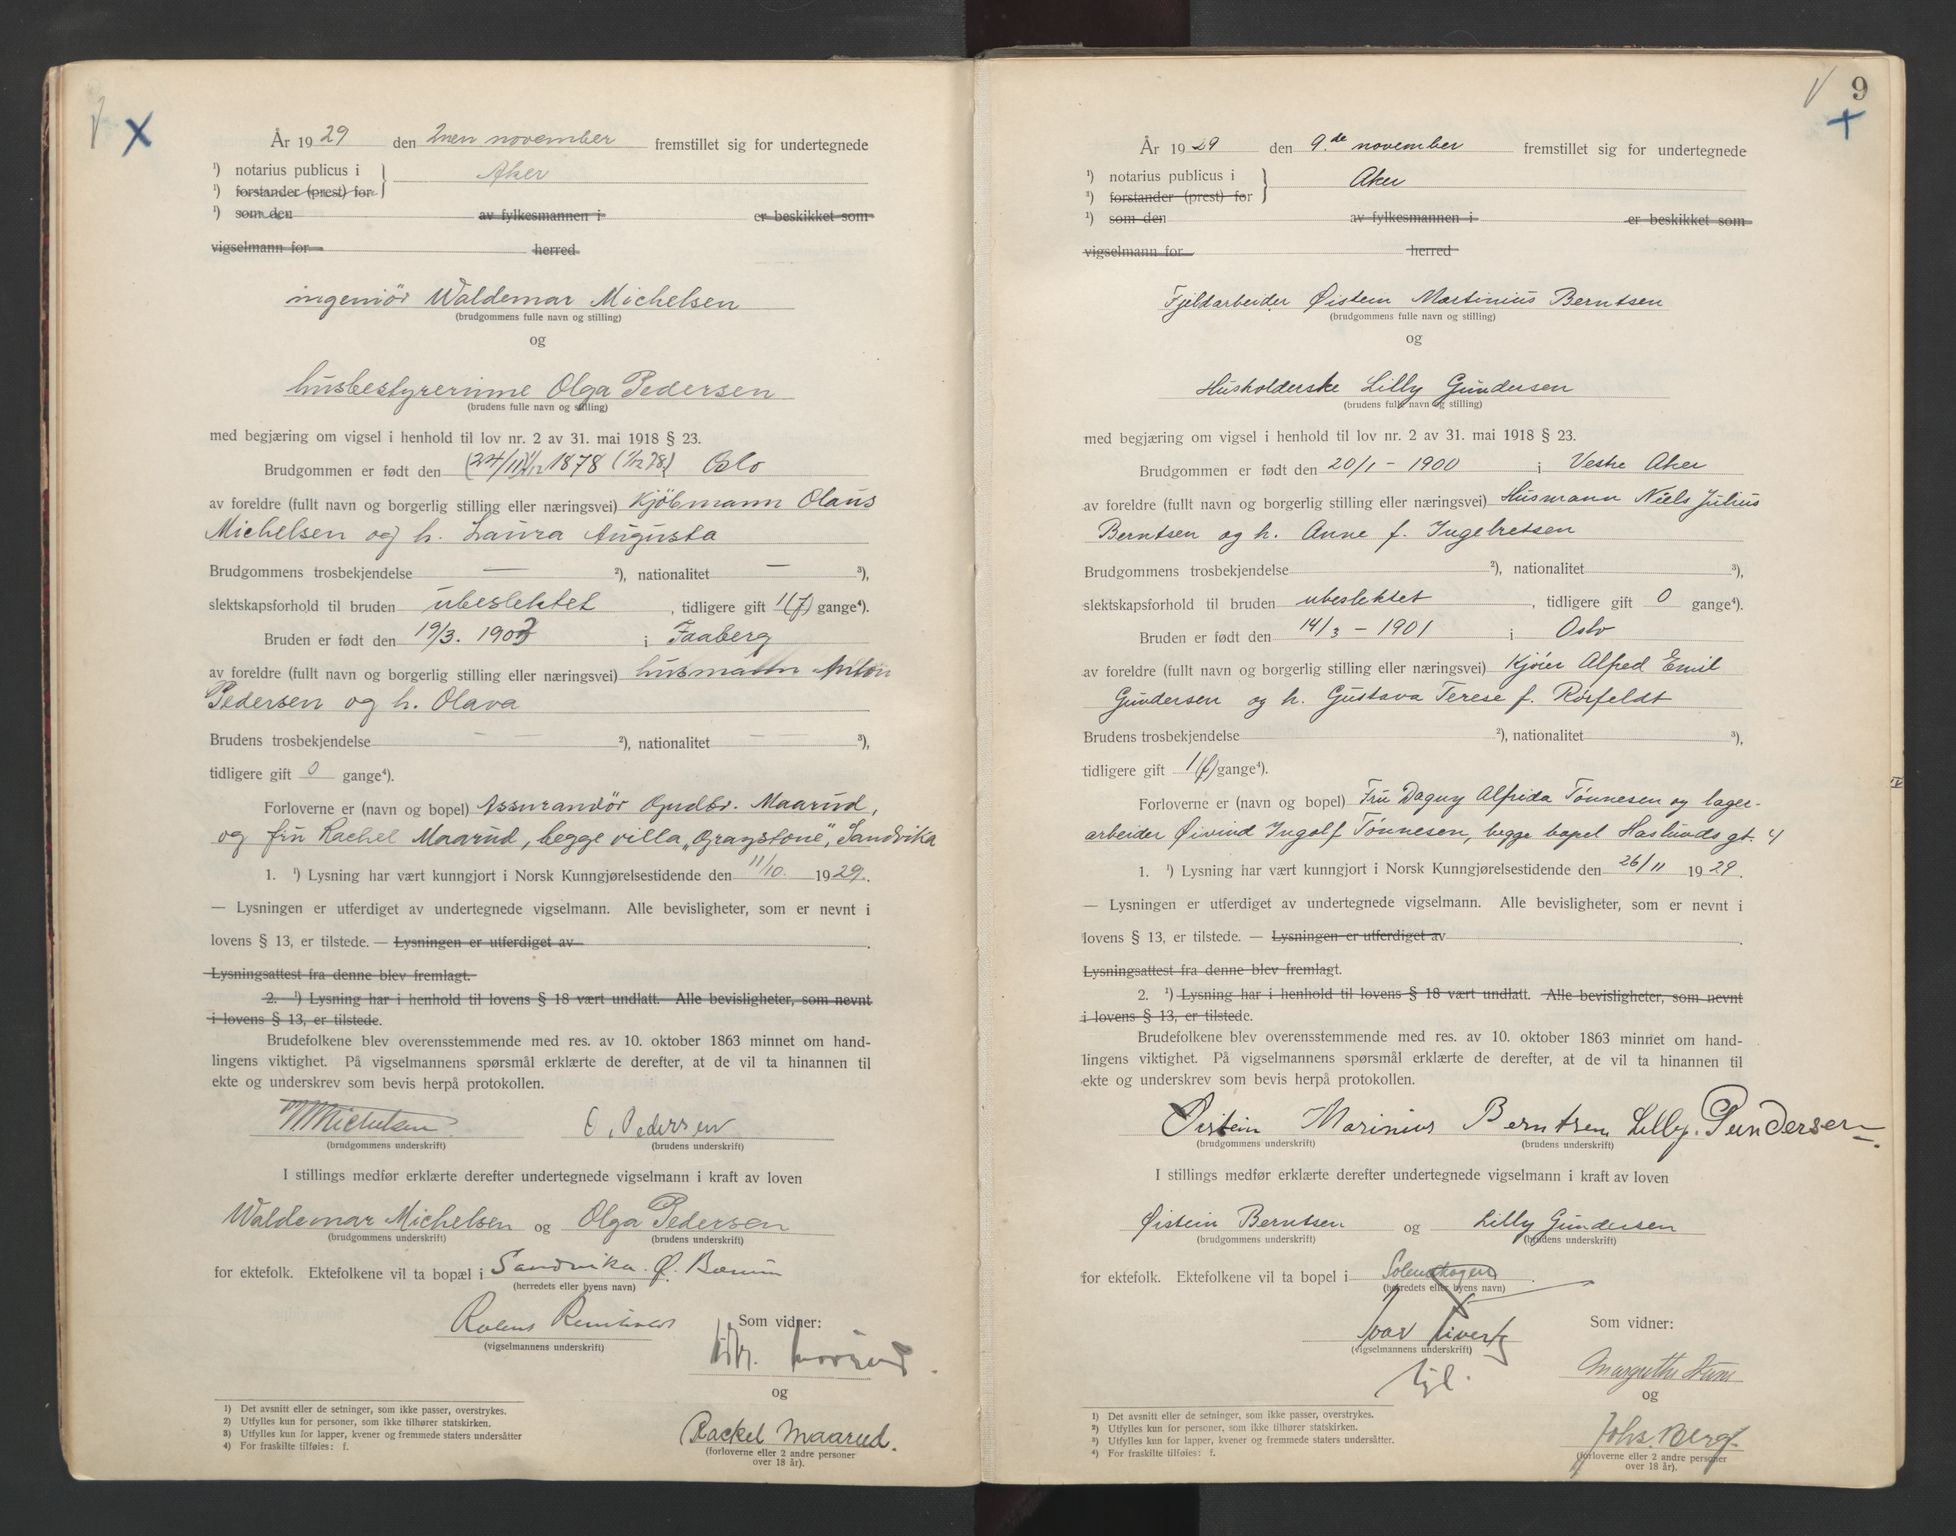 År 1929 den 2nen november fremstillet sig for undertegnede
¹) notarius publicus i Aker
¹) forstander (prest) for
¹) som den av fylkesmannen i er beskikket som
vigselmann for herred
ingeniör Waldemar Michelsen
(brudgommens fulle navn og stilling)
og
husbestyrerinne Olga Pedersen
(brudens fulle navn og stilling)
med begjæring om vigsel i henhold til lov nr. 2 av 31. mai 1918 § 23.
Brudgommen er født den (24/11) 1/12 1878 (1/12 78) Oslo
av foreldre (fullt navn og borgerlig stilling eller næringsvei) Kjöbmann Olaus
Michelsen og h. Laura Augusta
Brudgommens trosbekjendelse — ²), nationalitet — ³),
slektskapsforhold til bruden ubeslektet, tidligere gift 1 (f) gange⁴).
Bruden er født den 19/3. 1903 i Faaberg
av foreldre (fullt navn og borgerlig stilling eller næringsvei) husmann Anton
Pedersen og h. Olava
Brudens trosbekjendelse — — ²), nationalitet — ³),
tidligere gift 0 gange⁴).
Forloverne er (navn og bopel) Assurandör Gudbr. Maarud,
og fru Rachel Maarud, begge villa „Graystone", Sandvika
1. ¹) Lysning har vært kunngjort i Norsk Kunngjørelsestidende den 11/10. 1929.
— Lysningen er utferdiget av undertegnede vigselmann. Alle bevisligheter, som er nevnt i
lovens § 13, er tilstede. — Lysningen er utferdiget av
Lysningsattest fra denne blev fremlagt.
2. ¹) Lysning har i henhold til lovens § 18 vært undlatt. Alle bevisligheter, som nevnt
i lovens § 13, er tilstede.
Brudefolkene blev overensstemmende med res. av 10. oktober 1863 minnet om hand-
lingens viktighet. På vigselmannens spørsmål erklærte de derefter, at de vil ta hinannen til
ekte og underskrev som bevis herpå protokollen.
W Michelsen. O. Pedersen
(brudgommens underskrift) (brudens underskrift)
I stillings medfør erklærte derefter undertegnede vigselmann i kraft av loven
Waldemar Michelsen og Olga Pedersen
(brudgommens underskrift) (brudens underskrift)
for ektefolk. Ektefolkene vil ta bopæl i Sandvika. Ø. Bærum
(herredets eller byens navn)
Som vidner:
(vigselmannens underskrift)
og
Rackel Maarud.
(forloverne eller 2 andre personer
over 18 år).
¹) Det avsnitt eller de setninger, som ikke passer, overstrykes.
²) Utfylles kun for personer, som ikke tilhører statskirken.
³) Utfylles kun for lapper, kvener og fremmede staters undersåtter
⁴) For fraskilte tilføies: f.
9
År 1929 den 9.de november fremstillet sig for undertegnede
¹) notarius publicus i Aker
¹) forstander (prest) for
¹) som den av fylkesmannen i er beskikket som
vigselmann for herred
Fjeldarbeider Øistein Martinius Berntsen
(brudgommens fulle navn og stilling)
og
Husholderske Lilly Gundersen
(brudens fulle navn og stilling)
med begjæring om vigsel i henhold til lov nr. 2 av 31. mai 1918 § 23.
Brudgommen er født den 20/1 - 1900 i Vestre Aker
av foreldre (fullt navn og borgerlig stilling eller næringsvei) Husmann Niels Julius
Berntsen og h. Anne f. Ingebretsen
Brudgommens trosbekjendelse ²), nationalitet ³),
slektskapsforhold til bruden ubeslektet, tidligere gift 0 gange⁴).
Bruden er født den 14/3 - 1901 i Oslo
av foreldre (fullt navn og borgerlig stilling eller næringsvei) Kjöier Alfred Emil
Gundersen og h. Gustava Terese f. Rörfeldt
Brudens trosbekjendelse ²), nationalitet ³),
tidligere gift 1 (f) gange⁴).
Forloverne er (navn og bopel) Fru Dagny Alfrida Tönnesen og lager-
arbeider Öivind Ingolf Tönnesen, begge bopel Haslunds gt. 4
1. ¹) Lysning har vært kunngjort i Norsk Kunngjørelsestidende den 26/11 1929.
— Lysningen er utferdiget av undertegnede vigselmann. Alle bevisligheter, som er nevnt i
lovens § 13, er tilstede. — Lysningen er utferdiget av
Lysningsattest fra denne blev fremlagt.
2. ¹) Lysning har i henhold til lovens § 18 vært undlatt. Alle bevisligheter, som nevnt
i lovens § 13, er tilstede.
Brudefolkene blev overensstemmende med res. av 10. oktober 1863 minnet om hand-
lingens viktighet. På vigselmannens spørsmål erklærte de derefter, at de vil ta hinannen til
ekte og underskrev som bevis herpå protokollen.
Øistein Marinius Berntsen Lilly. Gundersen
(brudgommens underskrift) (brudens underskrift)
I stillings medfør erklærte derefter undertegnede vigselmann i kraft av loven
Øistein Berntsen og Lilly Gundersen
(brudgommens underskrift) (brudens underskrift)
for ektefolk. Ektefolkene vil ta bopel i
(herredets eller byens navn)
Ivar Som vidner:
(vigselmannens underskrift)
Margrethe
og
Johs. Berg.
(forloverne eller 2 andre personer
over 18 år).
¹) Det avsnitt eller de setninger, som ikke passer, overstrykes.
²) Utfylles kun for personer, som ikke tilhører statskirken.
³) Utfylles kun for lapper, kvener og fremmede staters undersåtter.
⁴) For fraskilte tilføies: f.